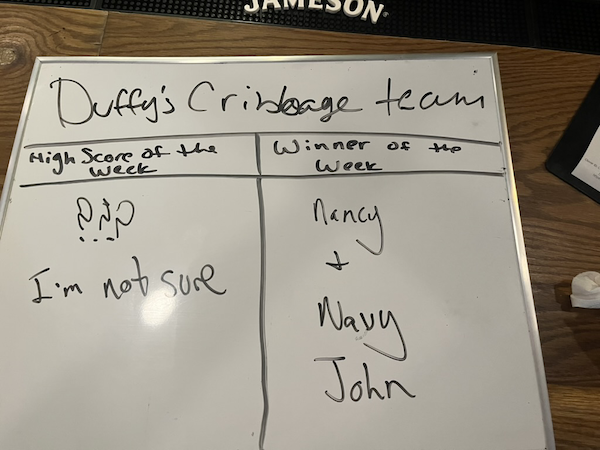 JAMESON
Duffy's Cribbage team
High Score of the
Week
Winner of the
Week
???
I'm not sure
Nancy
+
Navy
John